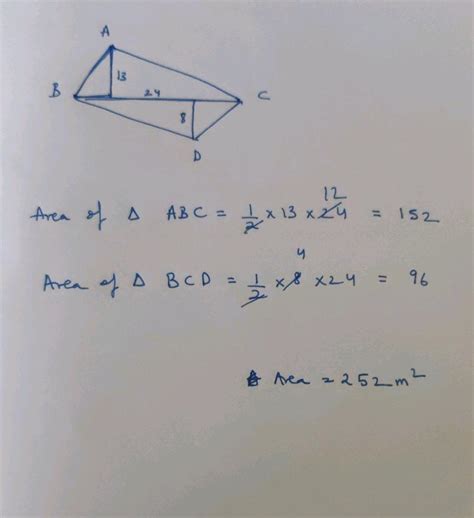 A
13
B
24
C
8
D
12
Area of Δ ABC = 1/2 × 13 × 24 = 152
4
Area of Δ BCD = 1/2 × 8 × 24 = 96
Area = 252 m²